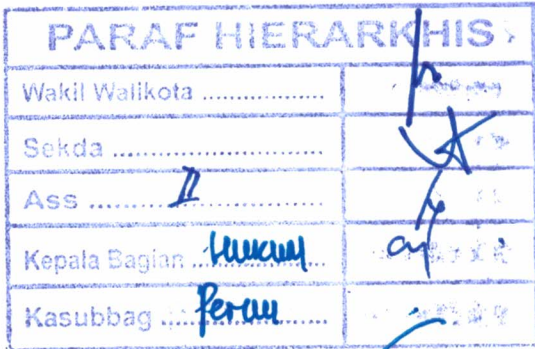 PARAF HIERARKHIS
Wakil Walikota ..................
Sekda ..........................
Ass ........ II ..................
Kepala Bagian .. Hukum ......
Kasubbag ..... PerUU ..........